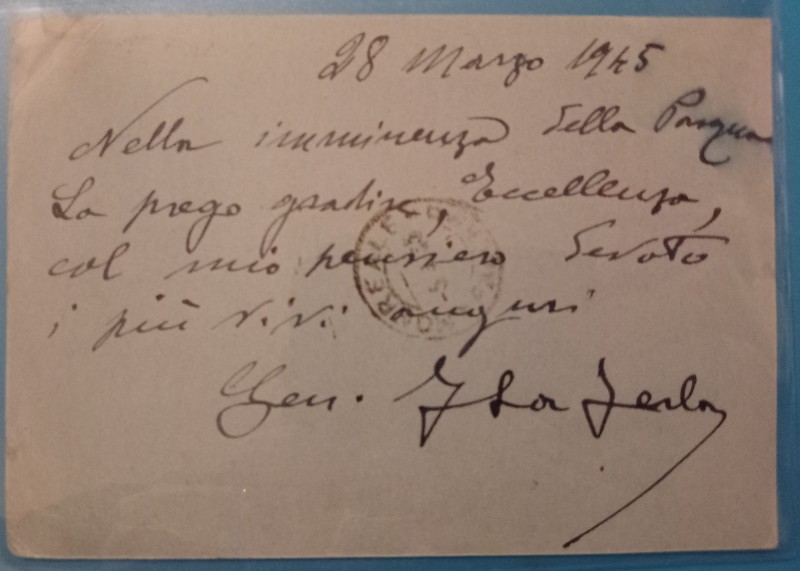 28 Marzo 1945
Nella imminenza della Pasqua
La prego gradire, Eccellenza,
col mio pensiero devoto
i più vivi auguri
Gen.
MONREALE